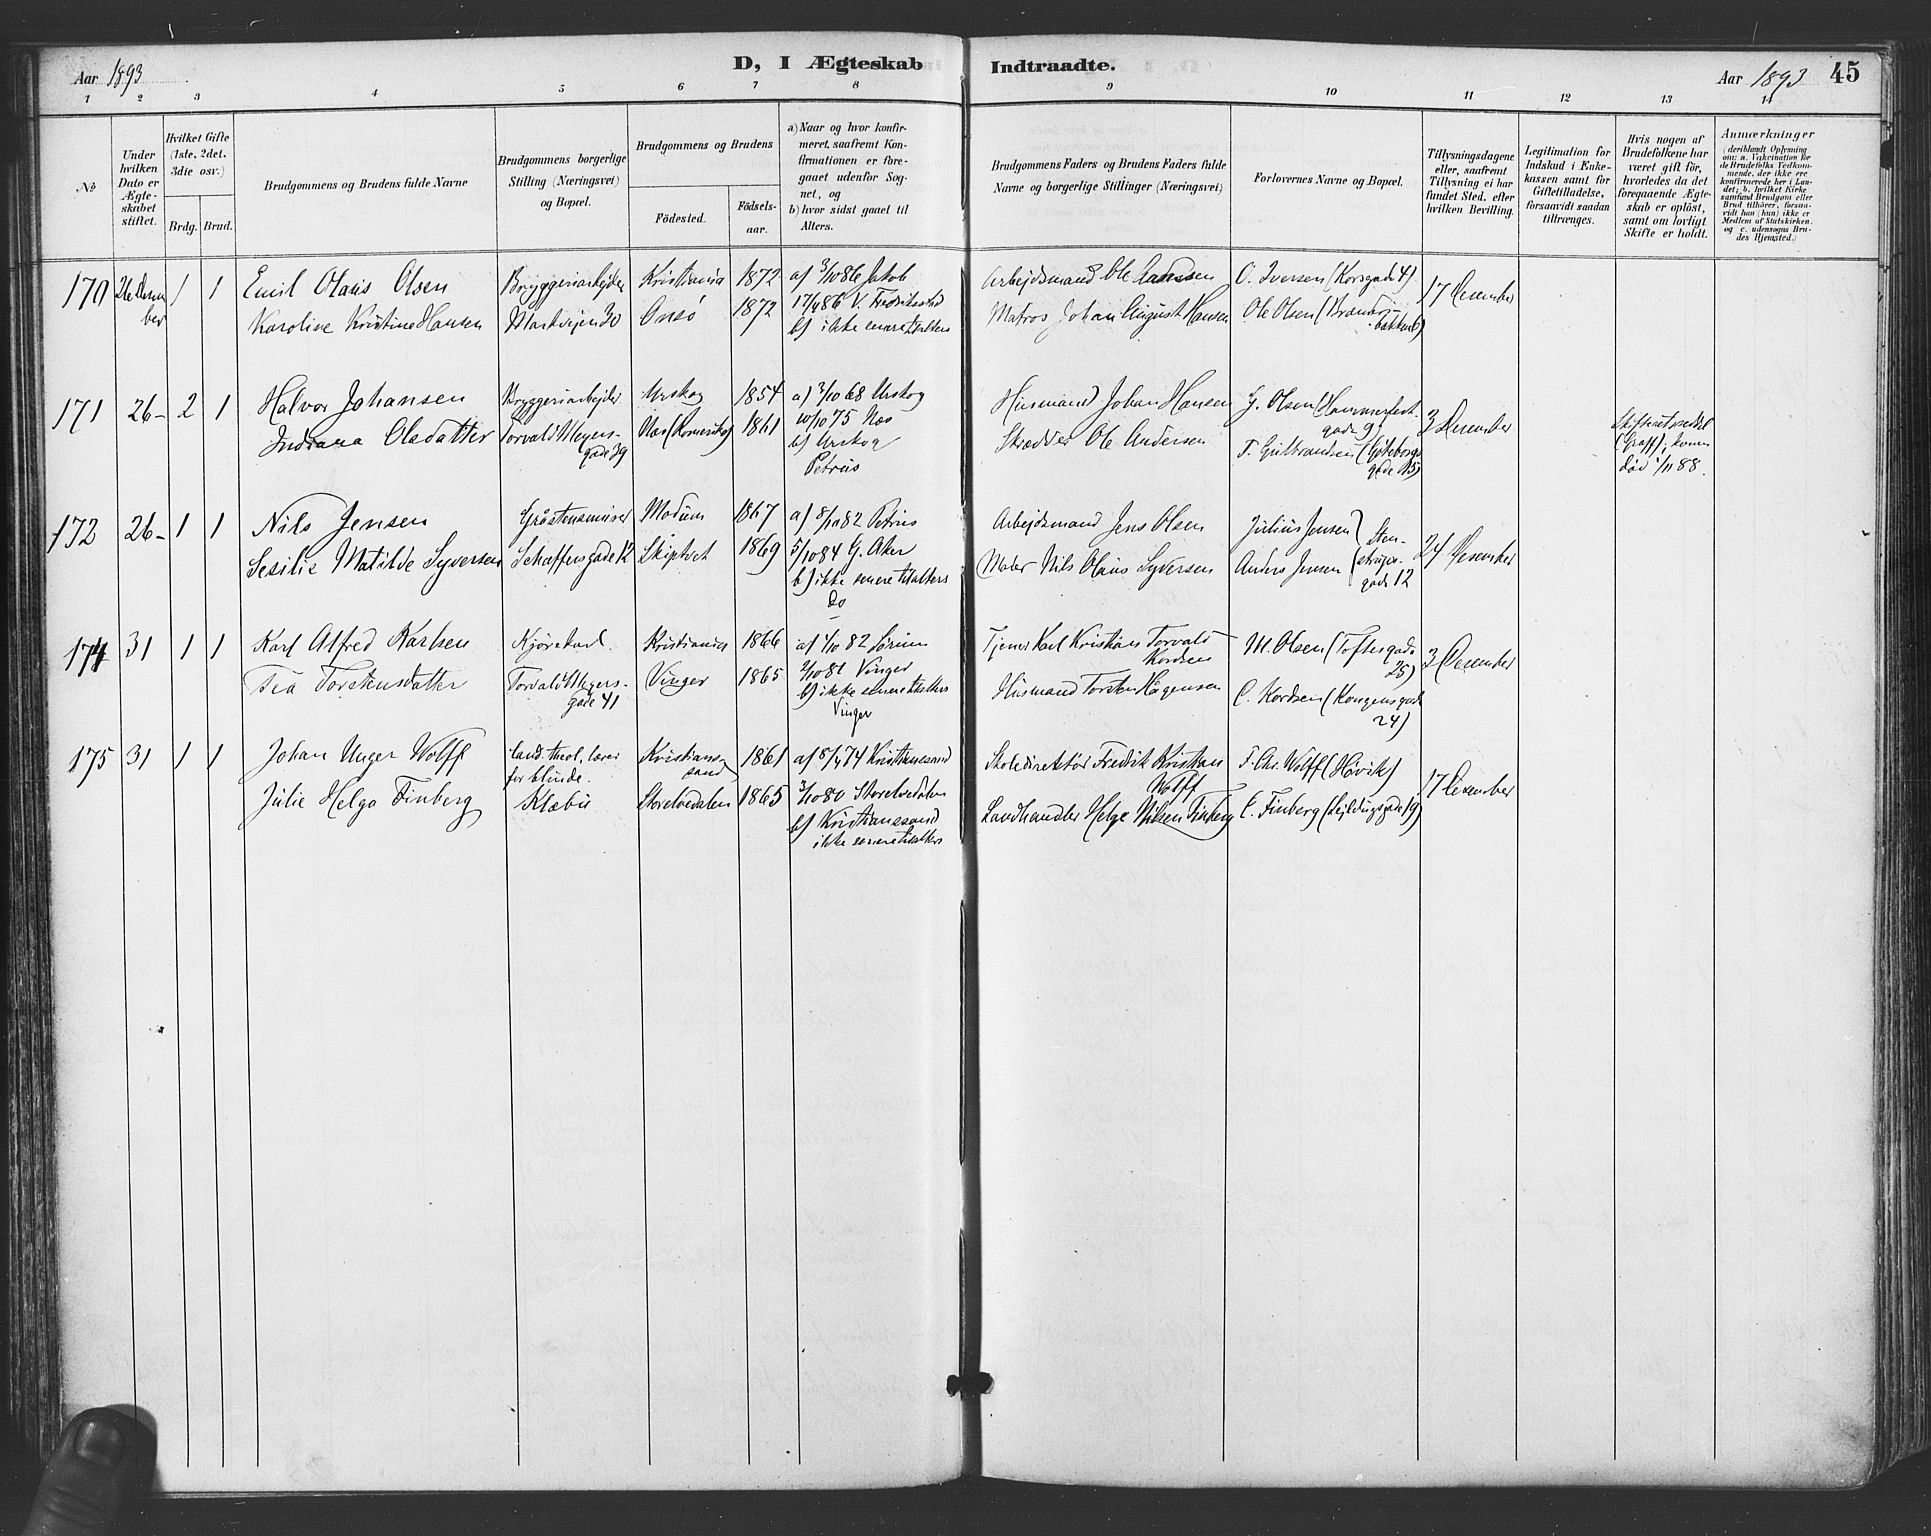 Aar 1893
D, I Ægteskab Indtraadte.
Aar 1893 45
1 2 3 4 5 6 7 8 9 10 11 12 13 14
№
Under hvilken Dato er Ægteskabet stiftet.
Hvilket Gifte (1ste, 2det, 3die osv.)
Brdg. Brud.
Brudgommens og Brudens fulde Navne
Brudgommens borgerlige Stilling (Næringsvei) og Bopæl.
Brudgommens og Brudens
Födested.
Födselsaar.
a) Naar og hvor konfirmeret, saafremt Konfirmationen er foregaaet udenfor Sognet, og
b) hvor sidst gaaet til Alters.
Brudgommens Faders og Brudens Faders fulde Navne og borgerlige Stillinger (Næringsvei)
Forlovernes Navne og Bopæl.
Tillysningsdagene eller, saafremt Tillysning ei har fundet Sted, efter hvilken Bevilling.
Legitimation for Indskud i Enkekassen samt for Giftetilladelse, forsaavidt saadan tiltrænges.
Hvis nogen af Brudefolkene har været gift før, hvorledes da det foregaaende Ægteskab er oplöst, samt om lovligt Skifte er holdt.
Anmærkninger
(deriblandt Oplysning om: a. Vakcination for de Brudefolks Vedkommende, der ikke ere konfirmerede her i Landet; b. hvilket Kirkesamfund Brudgom eller Brud tilhører, forsaavidt han (hun) ikke er Medlem af Statskirken, og c. udensogns Brudes Hjemsted.)
170 26 Decem 1 1 Emil Olaus Olsen Bryggeriarbejder Kristiania 1872 a) 3/10 86 Jakob Arbejdsmand Ole O. Iversen (Korsgade 4) 17 December
ber Karoline Kristine Hansen Markvejen 30 Onsö 1872 86 V. Fredrikstad Matros Johan August Hansen Ole Olsen (
b) ikke senere til alters bakken 6)
171 26– 2 1 Halvor Johansen Bryggeriarbejder Urskog 1854 a) 3/10 68 Urskog Husmand Johan Hansen G. Olsen (Hammerfest-
gade 9) 3 December
Indiana Olsdatter Torvald Meyers- (Romerike) 1861 10/10 75 Næs Skrædder Ole Andersen F. Gulbrandsen (Göteborg-
gade 39 b) Urskog gade 15)
Petrus
(Graff); konen
död 88.
172 26– 1 1 Nils Jensen Gråstensmurer Modum 1867 a) 8/10 82 Petrus Arbejdsmand Jens Olsen Julius Jensen Sten- 24 December
Sesilie Matilde Syversen Schaffersgade 12 Skiptvet 1869 5/10 84 G. Aker Maler Nils Olaus Syversen Anders Jensen
gade 12
b) ikke senere til alters
Do
174 31 1 1 Karl Alfred Karlsen Kjöre Kristiania 1866 a) 1/10 82 Sörum Tjener Karl Kristian Torvald M. Olsen (Toftesgade 3 December
Kordsen 25)
Tea Torstensdatter Torvald Meyers- Vinger 1865 Vinger Husmand Torsten Hagensen C. Kordsen (Kongensgade
gade 41 b) ikke senere til alters 24)
Vinger
175 31 1 1 Johan Unger Wolff Cand. theol., lærer Kristians- 1861 a) 74 Kristianssand Skoledirektör Fredrik Kristian F. Chr. Wolff (Hövik) 17 December
for blinde. sand Wolff
Julie Helga Finberg Klæbu Storelvedalen 1865 80 Storelvedalen Landhandler Helge Nilsen Finberg C. Finberg (
b) Kristianssand
ikke senere til alters